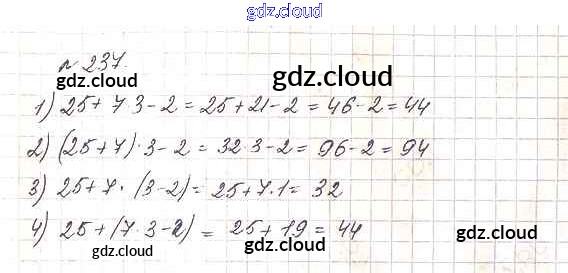 gdz.cloud
gdz.cloud
№ 237.
gdz.cloud
gdz.cloud
1) 25 + 7 3 - 2 = 25 + 21 - 2 = 46 - 2 = 44
2) (25 + 7) · 3 - 2 = 32 · 3 - 2 = 96 - 2 = 94
3) 25 + 7 · (3 - 2) = 25 + 7 · 1 = 32
4) 25 + (7 · 3 - 2) = 25 + 19 = 44
gdz.cloud
gdz.cloud
gdz.cloud